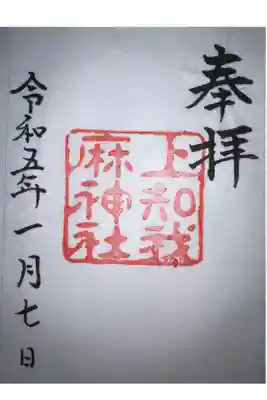 奉拝
上知我
麻神社
令和五年一月七日